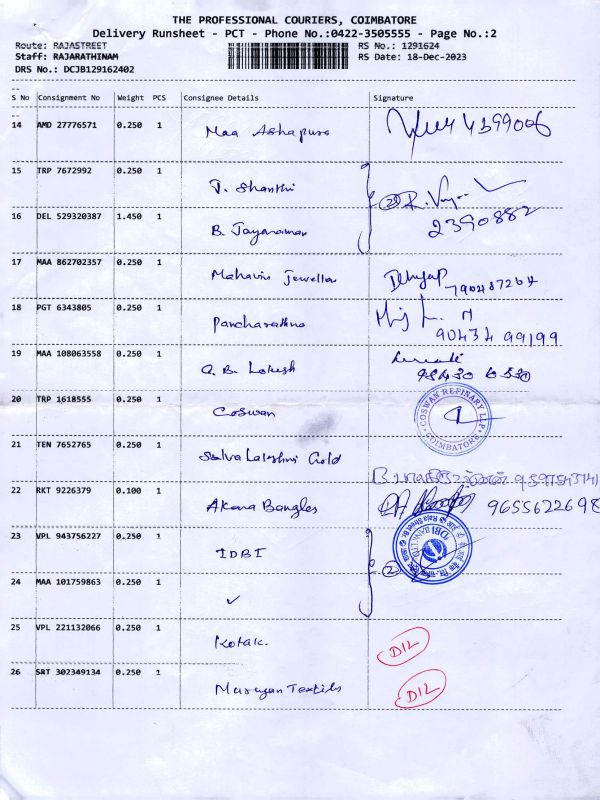 THE PROFESSIONAL COURIERS, COIMBATORE
Delivery Runsheet - PCT - Phone No.:0422-3505555 - Page No.:2
Route: RAJASTREET RS No.: 1291624
Staff: RAJARATHINAM RS Date: 18-Dec-2023
DRS No.: DCJB129162402
S No Consignment No Weight PCS Consignee Details Signature
14 AMD 27776571 0.250 1 Maa Ashapura
15 TRP 7672992 0.250 1 J. Shanthi
16 DEL 529320387 1.450 1 B. Jayaraman 2390882
17 MAA 862702357 0.250 1 Mahavir Jewellers
18 PGT 6343805 0.250 1 Pancharathna 90434 99199
19 MAA 108063558 0.250 1 Q. B. Lokesh
20 TRP 1618555 0.250 1 Coswan COSWAN REFINARY LLP COIMBATORE
21 TEN 7652765 0.250 1 Selva Lakshmi Gold
22 RKT 9226379 0.100 1 Akara Bangles 9655622698
23 VPL 943756227 0.250 1 IDBI IDBI BANK LTD
24 MAA 101759863 0.250 1 ✓ 2
25 VPL 221132066 0.250 1 Kotak. DIL
26 SRT 302349134 0.250 1 Murugan Textils DIL